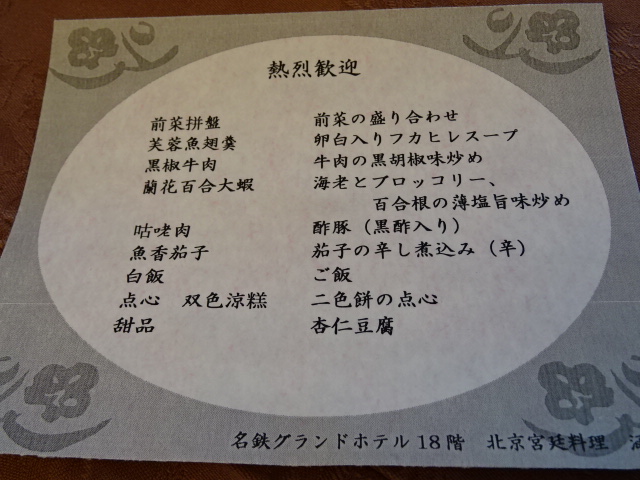 熱烈歓迎
前菜拼盤 前菜の盛り合わせ
芙蓉魚翅羹 卵白入りフカヒレスープ
黒椒牛肉 牛肉の黒胡椒味炒め
蘭花百合大蝦 海老とブロッコリー、
百合根の薄塩旨味炒め
咕咾肉 酢豚（黒酢入り）
魚香茄子 茄子の辛し煮込み（辛）
白飯 ご飯
点心 双色涼糕 二色餅の点心
甜品 杏仁豆腐
名鉄グランドホテル18階 北京宮廷料理